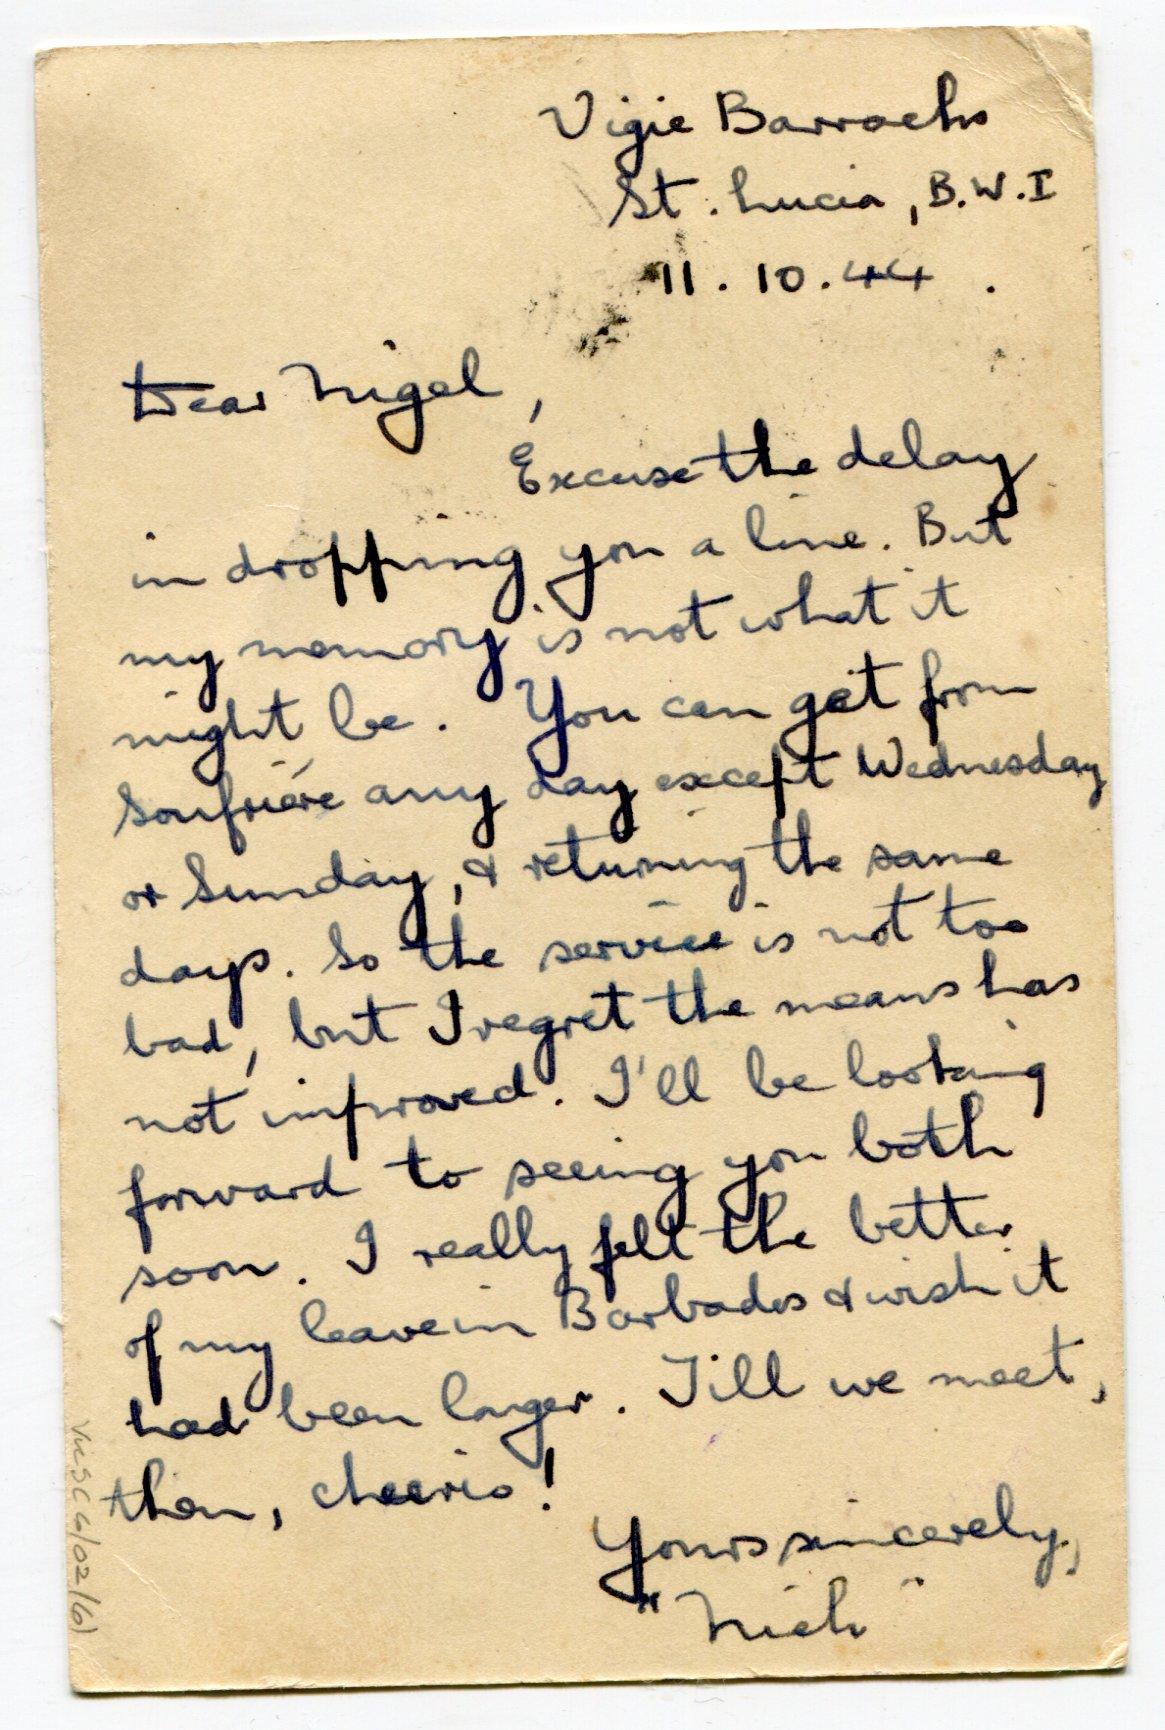 Vigie Barracks
St. Lucia, B.W.I
11.10.44.
Dear Nigel,
Excuse the delay
in dropping you a line. But
my memory is not what it
might be. You can get from
Soufrière any day except Wednesday
or Sunday, & returning the same
days. So the service is not too
bad, but I regret the means has
not improved. I'll be looking
forward to seeing you both
soon. I really felt the better
of my leave in Barbados & wish it
had been longer. Till we meet,
then, cheerio!
Yours sincerely,
"Nick"